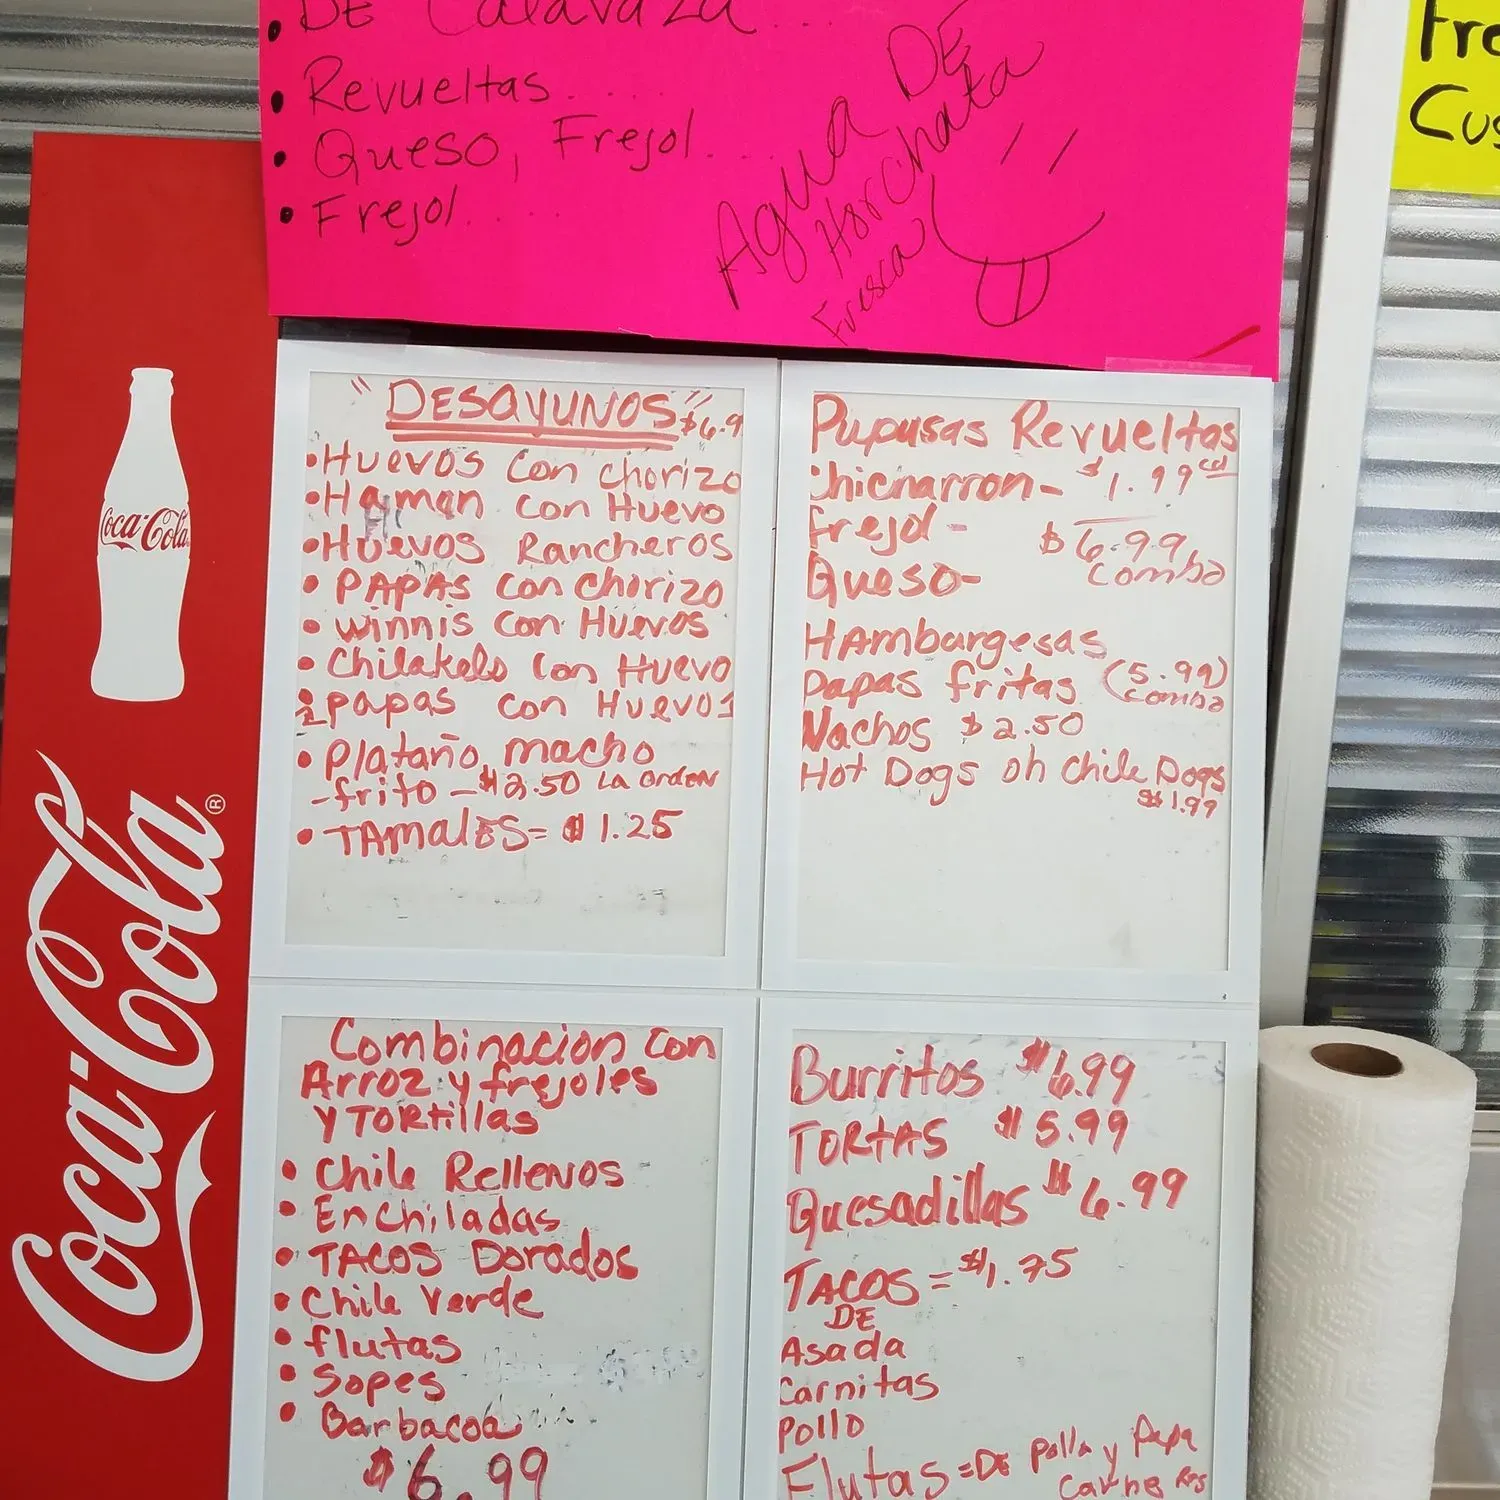 • DE Calavaza...
• Revueltas.....
• Queso, Frejol....
• Frejol.....
Agua DE
Horchata
Fresca
Fre
Cus
Coca-Cola
Coca-Cola®
"DESAYUNOS" $6.9
• HUEVOS con chorizo
• Hamen con Huevo
• Huevos Rancheros
• PAPAS con chorizo
• winnis con Huevos
• Chilakels con Huevo
papas con Huevos
• Plataño macho
-frito - $2.50 LA orden
• TAmalES= $1.25
Pupusas Revueltas
Chicharron- $1.99 cd
frejol - $6.99
combo
Queso-
HAmburgesas
papas fritas (5.99)
combo
Nachos $2.50
Hot Dogs oh chile Dogs
$1.99
Combinacion con
Arroz y frejoles
y TORtillas
• Chile Rellenos
• Enchiladas
• TACOS Dorados
• Chile Verde
• flutas
• Sopes
• Barbacoa
$6.99
Burritos $6.99
TORtAS $5.99
Quesadillas $6.99
TACOS = $1.75
DE
Asada
Carnitas
Pollo
Flutas = DE polla y papa
Carne Res